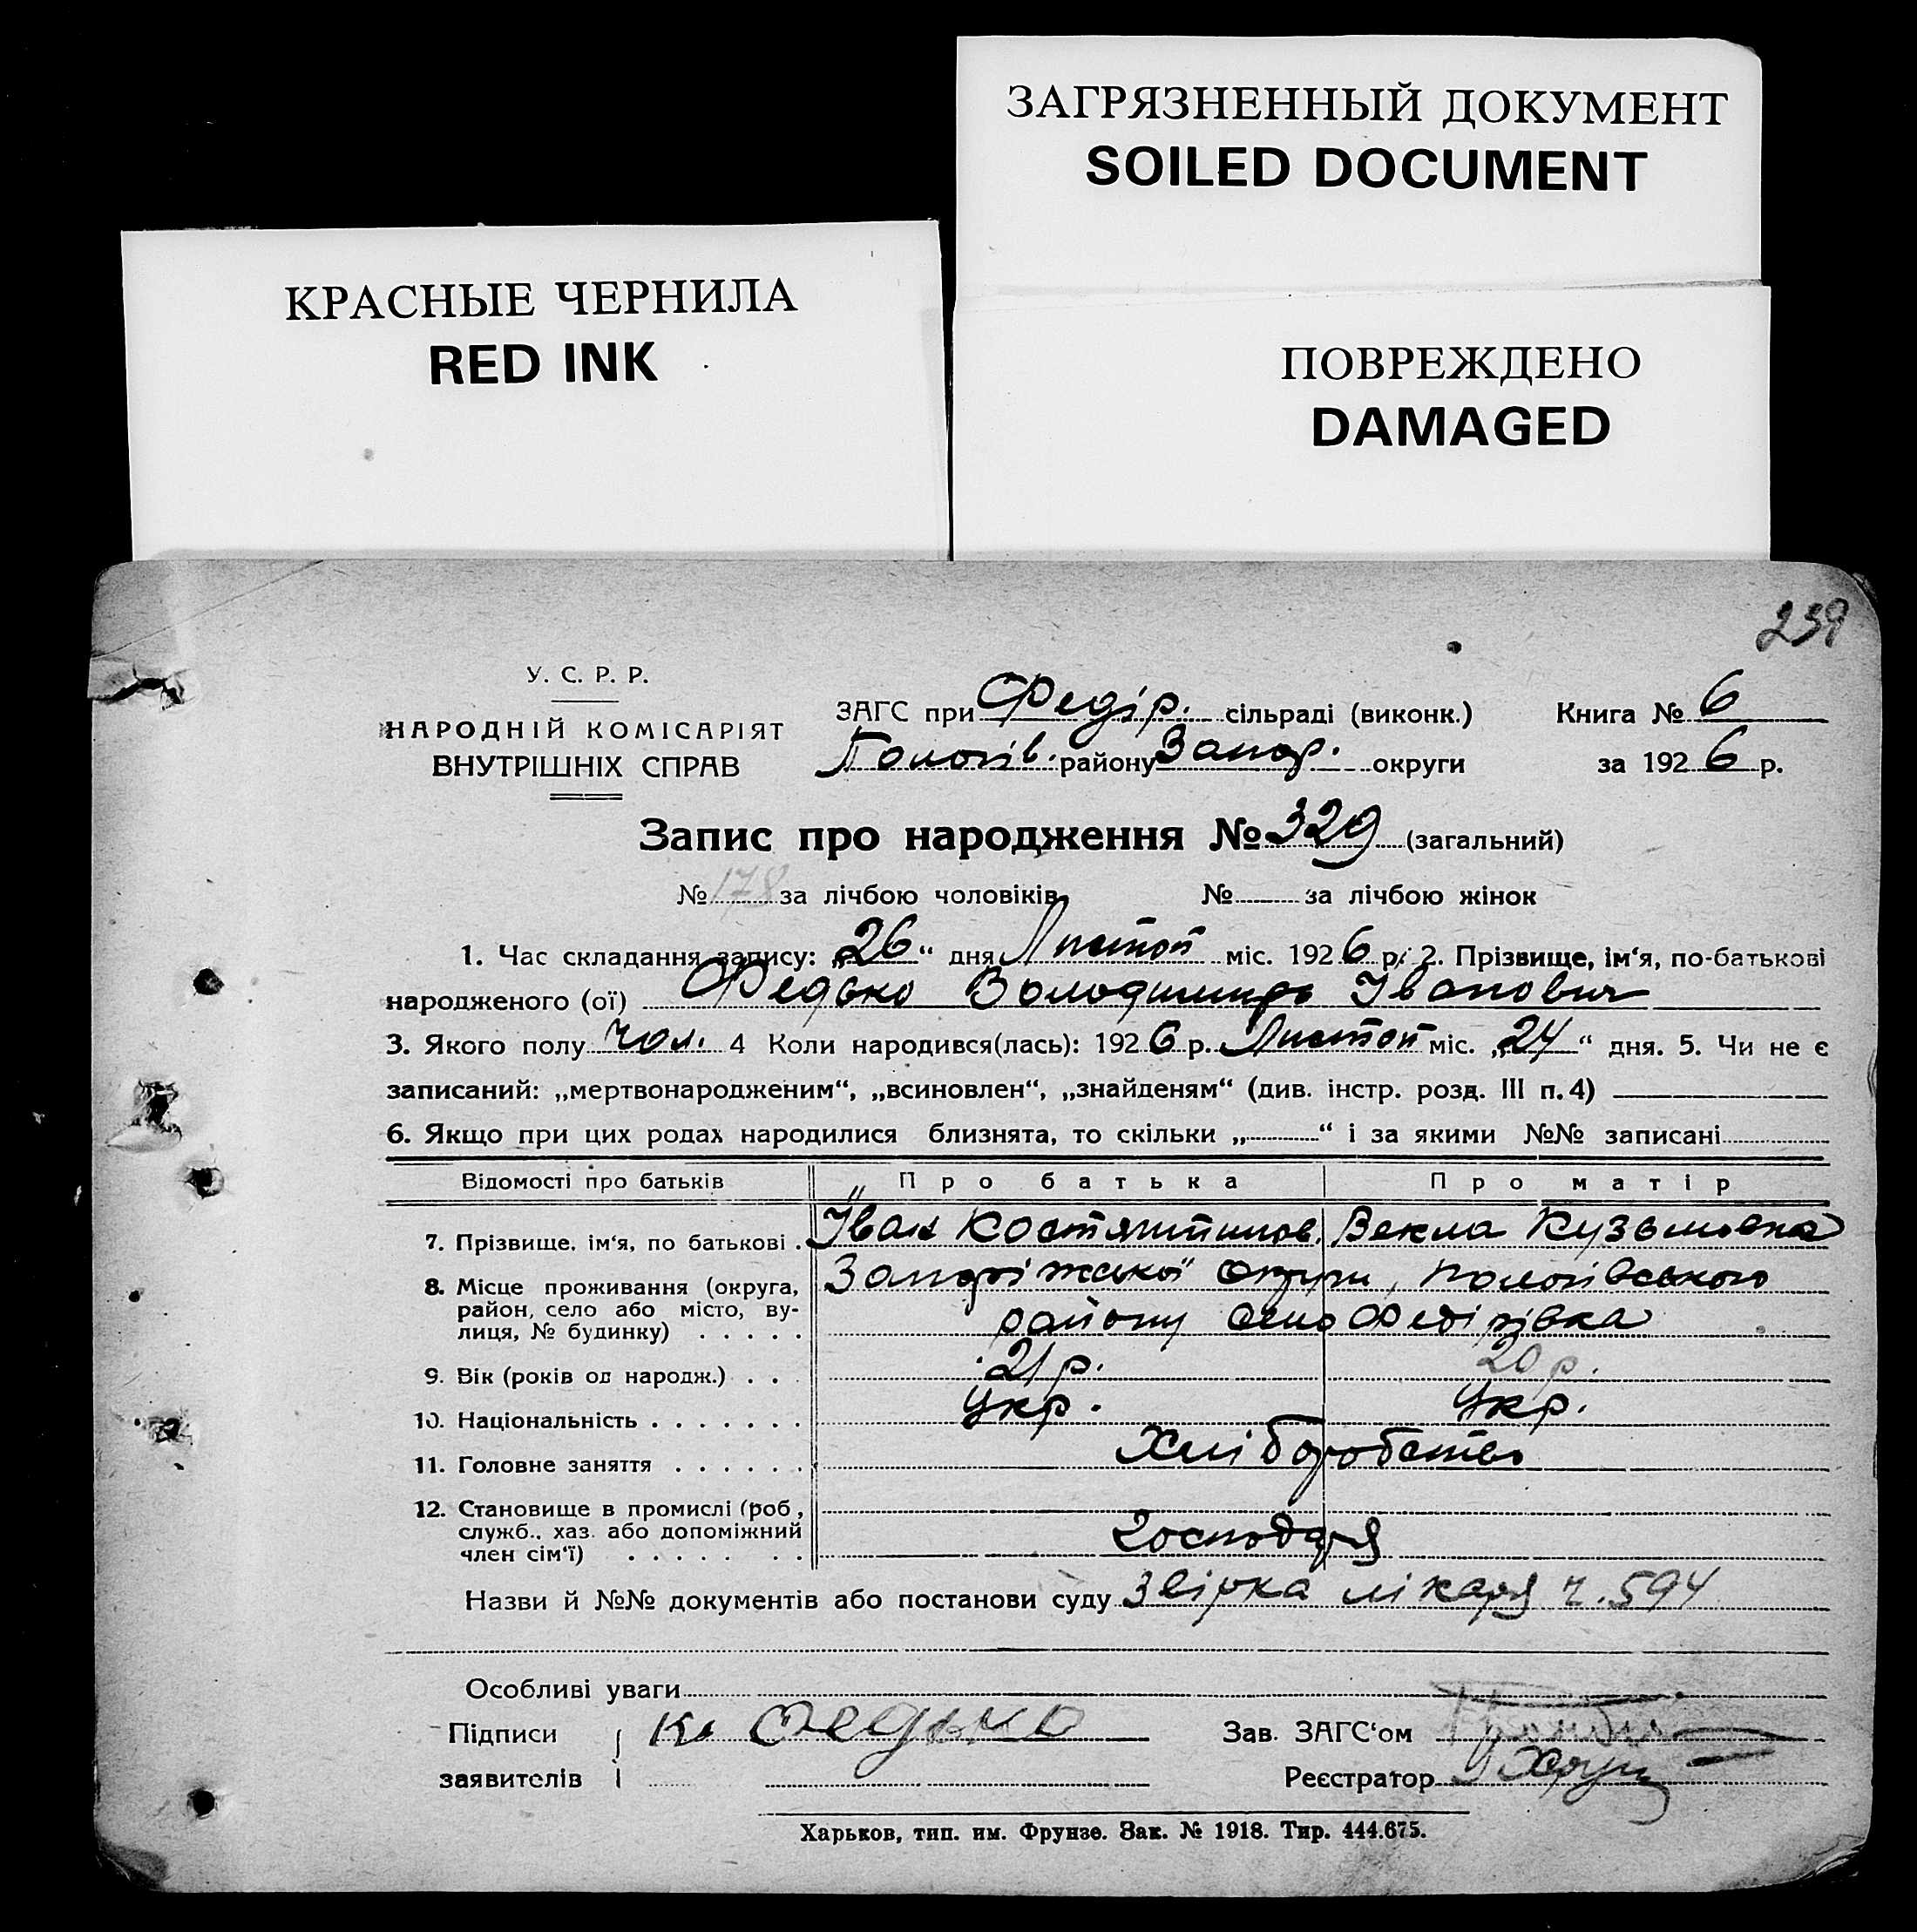 ЗАГРЯЗНЕННЫЙ ДОКУМЕНТ
SOILED DOCUMENT
КРАСНЫЕ ЧЕРНИЛА
RED INK
ПОВРЕЖДЕНО
DAMAGED
239
У. С. Р. Р.
НАРОДНІЙ КОМІСАРІЯТ
ВНУТРІШНІХ СПРАВ
ЗАГС при Федір. сільраді (виконк.) Книга № 6
Пологів. району Запор. округи за 1926 р.
Запис про народження № 329 (загальний)
№ 178 за лічбою чоловіків № за лічбою жінок
1. Час складання запису: „26“ дня Листоп міс. 1926 р. 2. Прізвище, ім‘я, по-батькові
народженого (ої) Федько Володимирь Іванович
3. Якого полу чол. 4 Коли народився(лась): 1926 р. Листоп міс. „24“ дня. 5. Чи не є
записаний: „мертвонародженим“, „всиновлен“, „знайденям“ (див. інстр. розд. III п. 4)
6. Якщо при цих родах народилися близнята, то скільки „ “ і за якими №№ записані
Відомості про батьків Про батька Про матір
7. Прізвище, ім‘я, по батькові . Іван Костянтинов. Векла Кузьмовна
8. Місце проживання (округа, Запоріжської округи, Пологівського
район, село або місто, ву- району село Федірівка
лиця, № будинку) . . . . .
9. Вік (років од народж.) . . . 21 р. 20 р.
10. Національність . . . . . . . Укр. Укр.
11. Головне заняття . . . . . . Хліборобство
12. Становище в промислі (роб,
служб., хаз. або допоміжний Господар
член сім‘ї) . . . . . . .
Назви й №№ документів або постанови суду Звірка лікаря ч. 594
Особливі уваги
Підписи Федько Зав. ЗАГС‘ом
заявителів Реєстратор
Харьков, тип. им. Фрунзе. Зак. № 1918. Тир. 444.675.